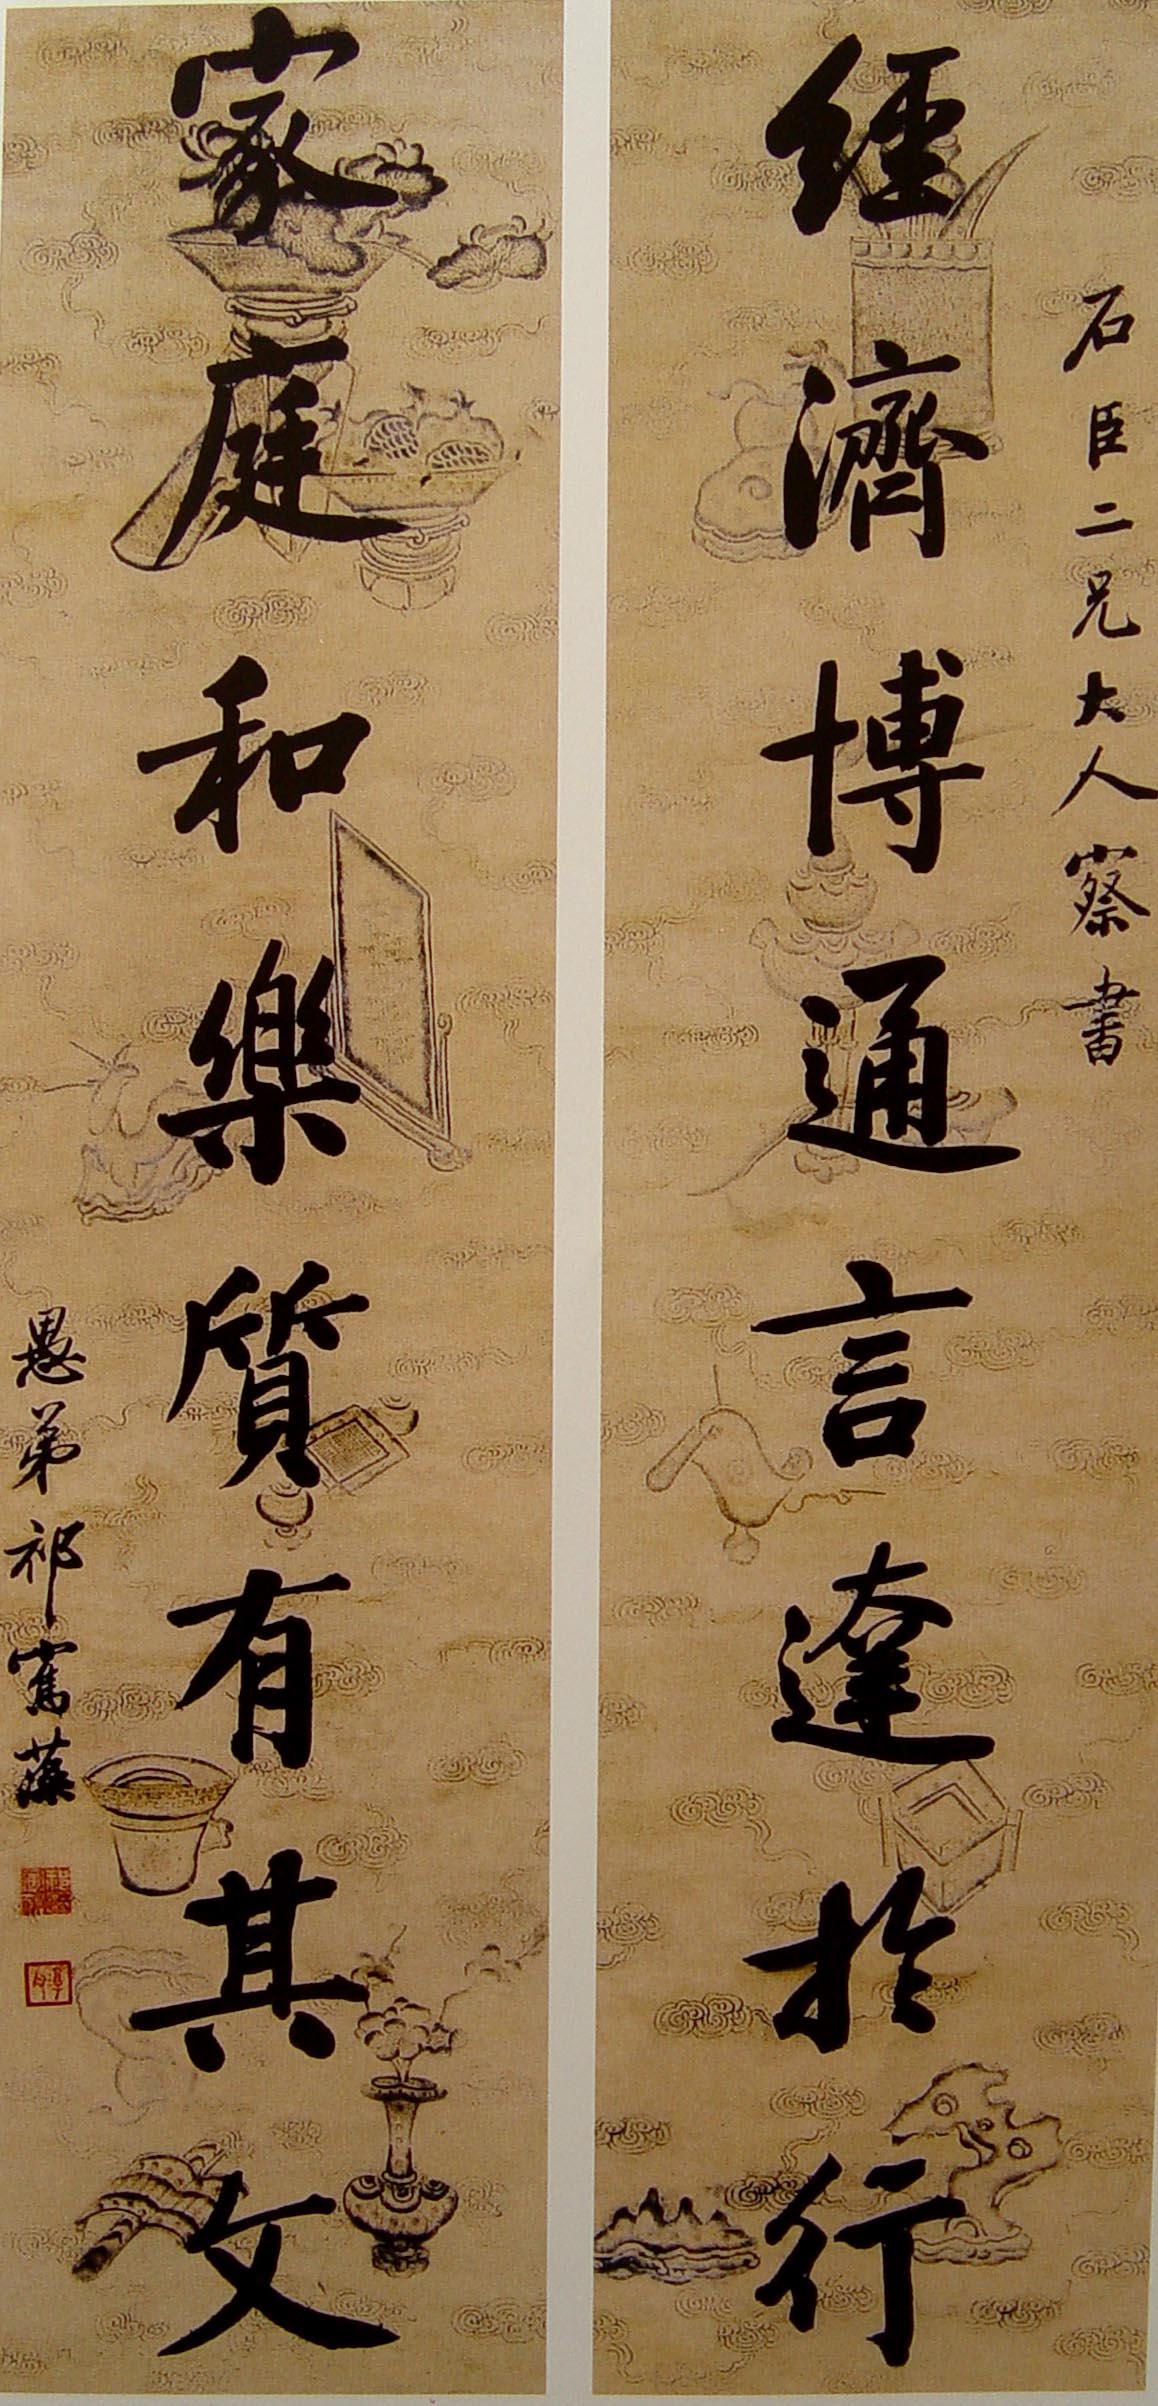 石臣二兄大人察書
經濟博通言達於行
家庭和樂質有其文
愚弟祁寯藻